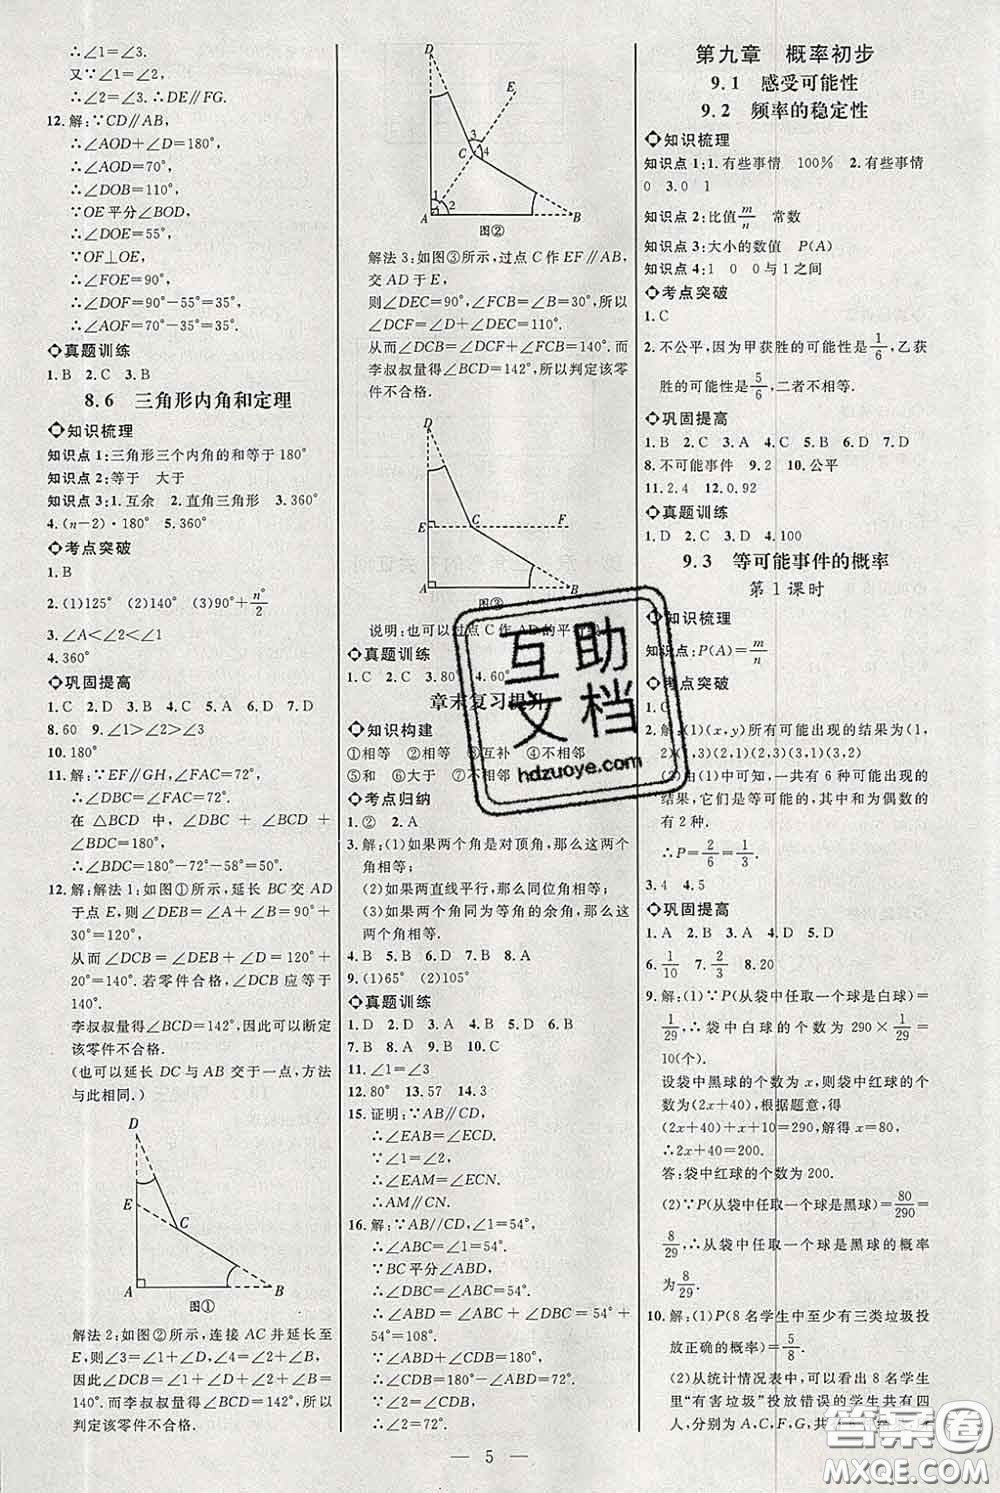 ∴∠1=∠3.
又∵∠1=∠2,
∴∠2=∠3. ∴DE∥FG.
12. 解:∵CD∥AB,
∴∠AOD+∠D=180°,
∴∠AOD=70°.
∴∠DOB=110°,
∵OE平分∠BOD,
∴∠DOE=55°,
∵OF⊥OE,
∴∠FOE=90°,
∴∠DOF=90°-55°=35°,
∴∠AOF=70°-35°=35°.
真题训练
1. B 2. C 3. B
8.6 三角形内角和定理
知识梳理
知识点 1:三角形三个内角的和等于180°
知识点 2:等于 大于
知识点 3:1. 互余 2. 直角三角形 3. 360°
4. (n-2)·180° 5. 360°
考点突破
1. B
2. (1)125° (2)140° (3)90°+n°/2
3. ∠A<∠2<∠1
4. 360°
巩固提高
1. C 2. C 3. B 4. C 5. D 6. B 7. D
8. 60 9. ∠1>∠2>∠3
10. 180°
11. 解:∵EF∥GH,∠FAC=72°,
∴∠DBC=∠FAC=72°.
在△BCD中,∠DBC+∠DCB+∠BDC=180°,
∴∠BDC=180°-72°-58°=50°.
12. 解:解法 1:如图①所示,延长 BC 交 AD
于点 E,则∠DEB=∠A+∠B=90°+
30°=120°,
从而∠DCB=∠DEB+∠D=120°+
20°=140°. 若零件合格,∠DCB 应等于
140°.
李叔叔量得∠BCD=142°,因此可以断定
该零件不合格.
(也可以延长 DC 与 AB 交于一点,方法
与此相同.)
D
E
C
A
B
图①
解法 2:如图②所示,连接 AC 并延长至
E,则∠3=∠D+∠1,∠4=∠2+∠B,
因此∠DCB=∠1+∠D+∠2+∠B=
140°. 而李叔叔量得∠BCD=142°,所以
判定该零件不合格.
D
E
3
C 4
1
2
A
B
图②
解法 3:如图③所示,过点 C 作 EF∥AB,
交 AD 于 E,
则∠DEC=90°,∠FCB=∠B=30°,所以
∠DCF=∠D+∠DEC=110°.
从而∠DCB=∠DCF+∠FCB=140°. 而
李叔叔量得∠BCD=142°,所以判定该零
件不合格.
D
E C F
A
B
说明:也可以过点 C 作 AD 的平
真题训练
1. C 2. C 3. 80° 4. 60°
章末复习提升
知识构建
①相等 ②相等 ③互补 ④不相邻
⑤和 ⑥大于 ⑦不相邻
考点归纳
1. ② 2. A
3. 解:(1)如果两个角是对顶角,那么这两个
角相等;
(2)如果两直线平行,那么同位角相等;
(3)如果两个角同为等角的余角,那么这
两个角相等.
4. B 5. B 6. D 7. D 8. A
9. (1)65° (2)105°
真题训练
1. D 2. D 3. A 4. B 5. D 6. D
7. B 8. A 9. B 10. C
11. ∠1=∠3
12. 80° 13. 57 14. 3
15. 证明:∵AB∥CD,
∴∠EAB=∠ECD.
∵∠1=∠2,
∴∠EAM=∠ECN.
∴AM∥CN.
16. 解:∵AB//CD,∠1=54°,
∴∠ABC=∠1=54°.
∵BC平分∠ABD,
∴∠DBC=∠ABC=54°.
∴∠ABD=∠ABC+∠DBC=54°+
54°=108°.
∵∠ABD+∠CDB=180°,
∴∠CDB=180°-∠ABD=72°.
∵∠2=∠CDB,
∴∠2=72°.
第九章 概率初步
9.1 感受可能性
9.2 频率的稳定性
知识梳理
知识点 1:1. 有些事情 100% 2. 有些事情
0 3. 0 1
知识点 2:比值m/n 常数
知识点 3:大小的数值 P(A)
知识点 4:1 0 0与1之间
考点突破
1. C
2. 不公平,因为甲获胜的可能性是1/6,乙获
胜的可能性是5/6,二者不相等.
巩固提高
1. B 2. C 3. A 4. C 5. B 6. D 7. D
8. 不可能事件 9. 2 10. 公平
11. 2.4 12. 0.92
真题训练
1. D 2. C 3. D 4. 100
9.3 等可能事件的概率
第 1 课时
知识梳理
知识点:P(A)=m/n
考点突破
1. C
2. 解:(1)(x,y)所有可能出现的结果为(1,
2)(1,3)(2,1)(2,3)(3,1)(3,2).
(2)由(1)中可知,一共有 6 种可能出现的
结果,它们是等可能的,其中和为偶数的
有 2 种.
∴P=2/6=1/3.
3. 4 4. 5
巩固提高
1. A 2. B 3. A 4. D 5. A
6. 1/10 7. 2/3 8. 20
9. 解:(1)∵P(从袋中任取一个球是白球)=
1/29,∴袋中白球的个数为 290×1/29=
10(个).
设袋中黑球的个数为 x,则袋中红球的个
数为(2x+40),根据题意,得
(2x+40)+x+10=290,解得 x=80,
∴2x+40=200.
答:袋中红球的个数为 200.
(2)∵P(从袋中任取一个球是黑球)=80/290=
8/29,∴从袋中任取一个球是黑球的概率
为8/29.
10. 解:(1)P(8 名学生中至少有三类垃圾投
放正确的概率)=5/8.
(2)从统计情况表中,可以看出 8 名学生
里“有害垃圾”投放错误的学生共有四
人,分别为 A,C,F,G,
5
互助文档
hdzuoye.com
答案圈
MXQE.COM